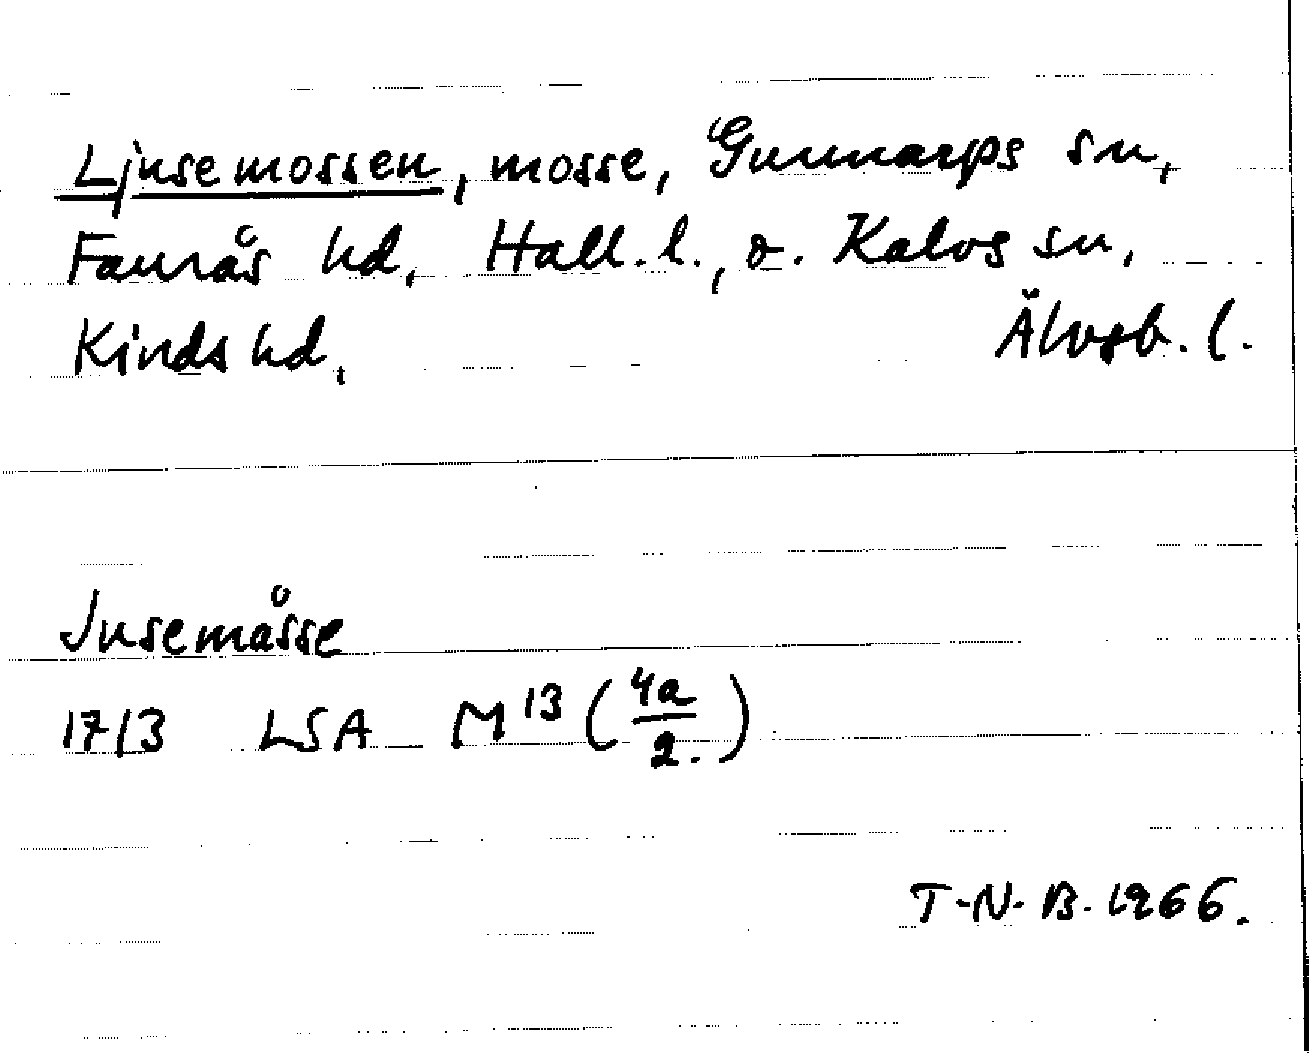 Ljusemossen, mosse, Gunnarps sn,
Faurås hd, Hall. l., o. Kalvs sn,
Kinds hd, Älvsb. l.
Jusemåsse
1713 LSA M 13 (4a/2.)
T-N. B. 1966.